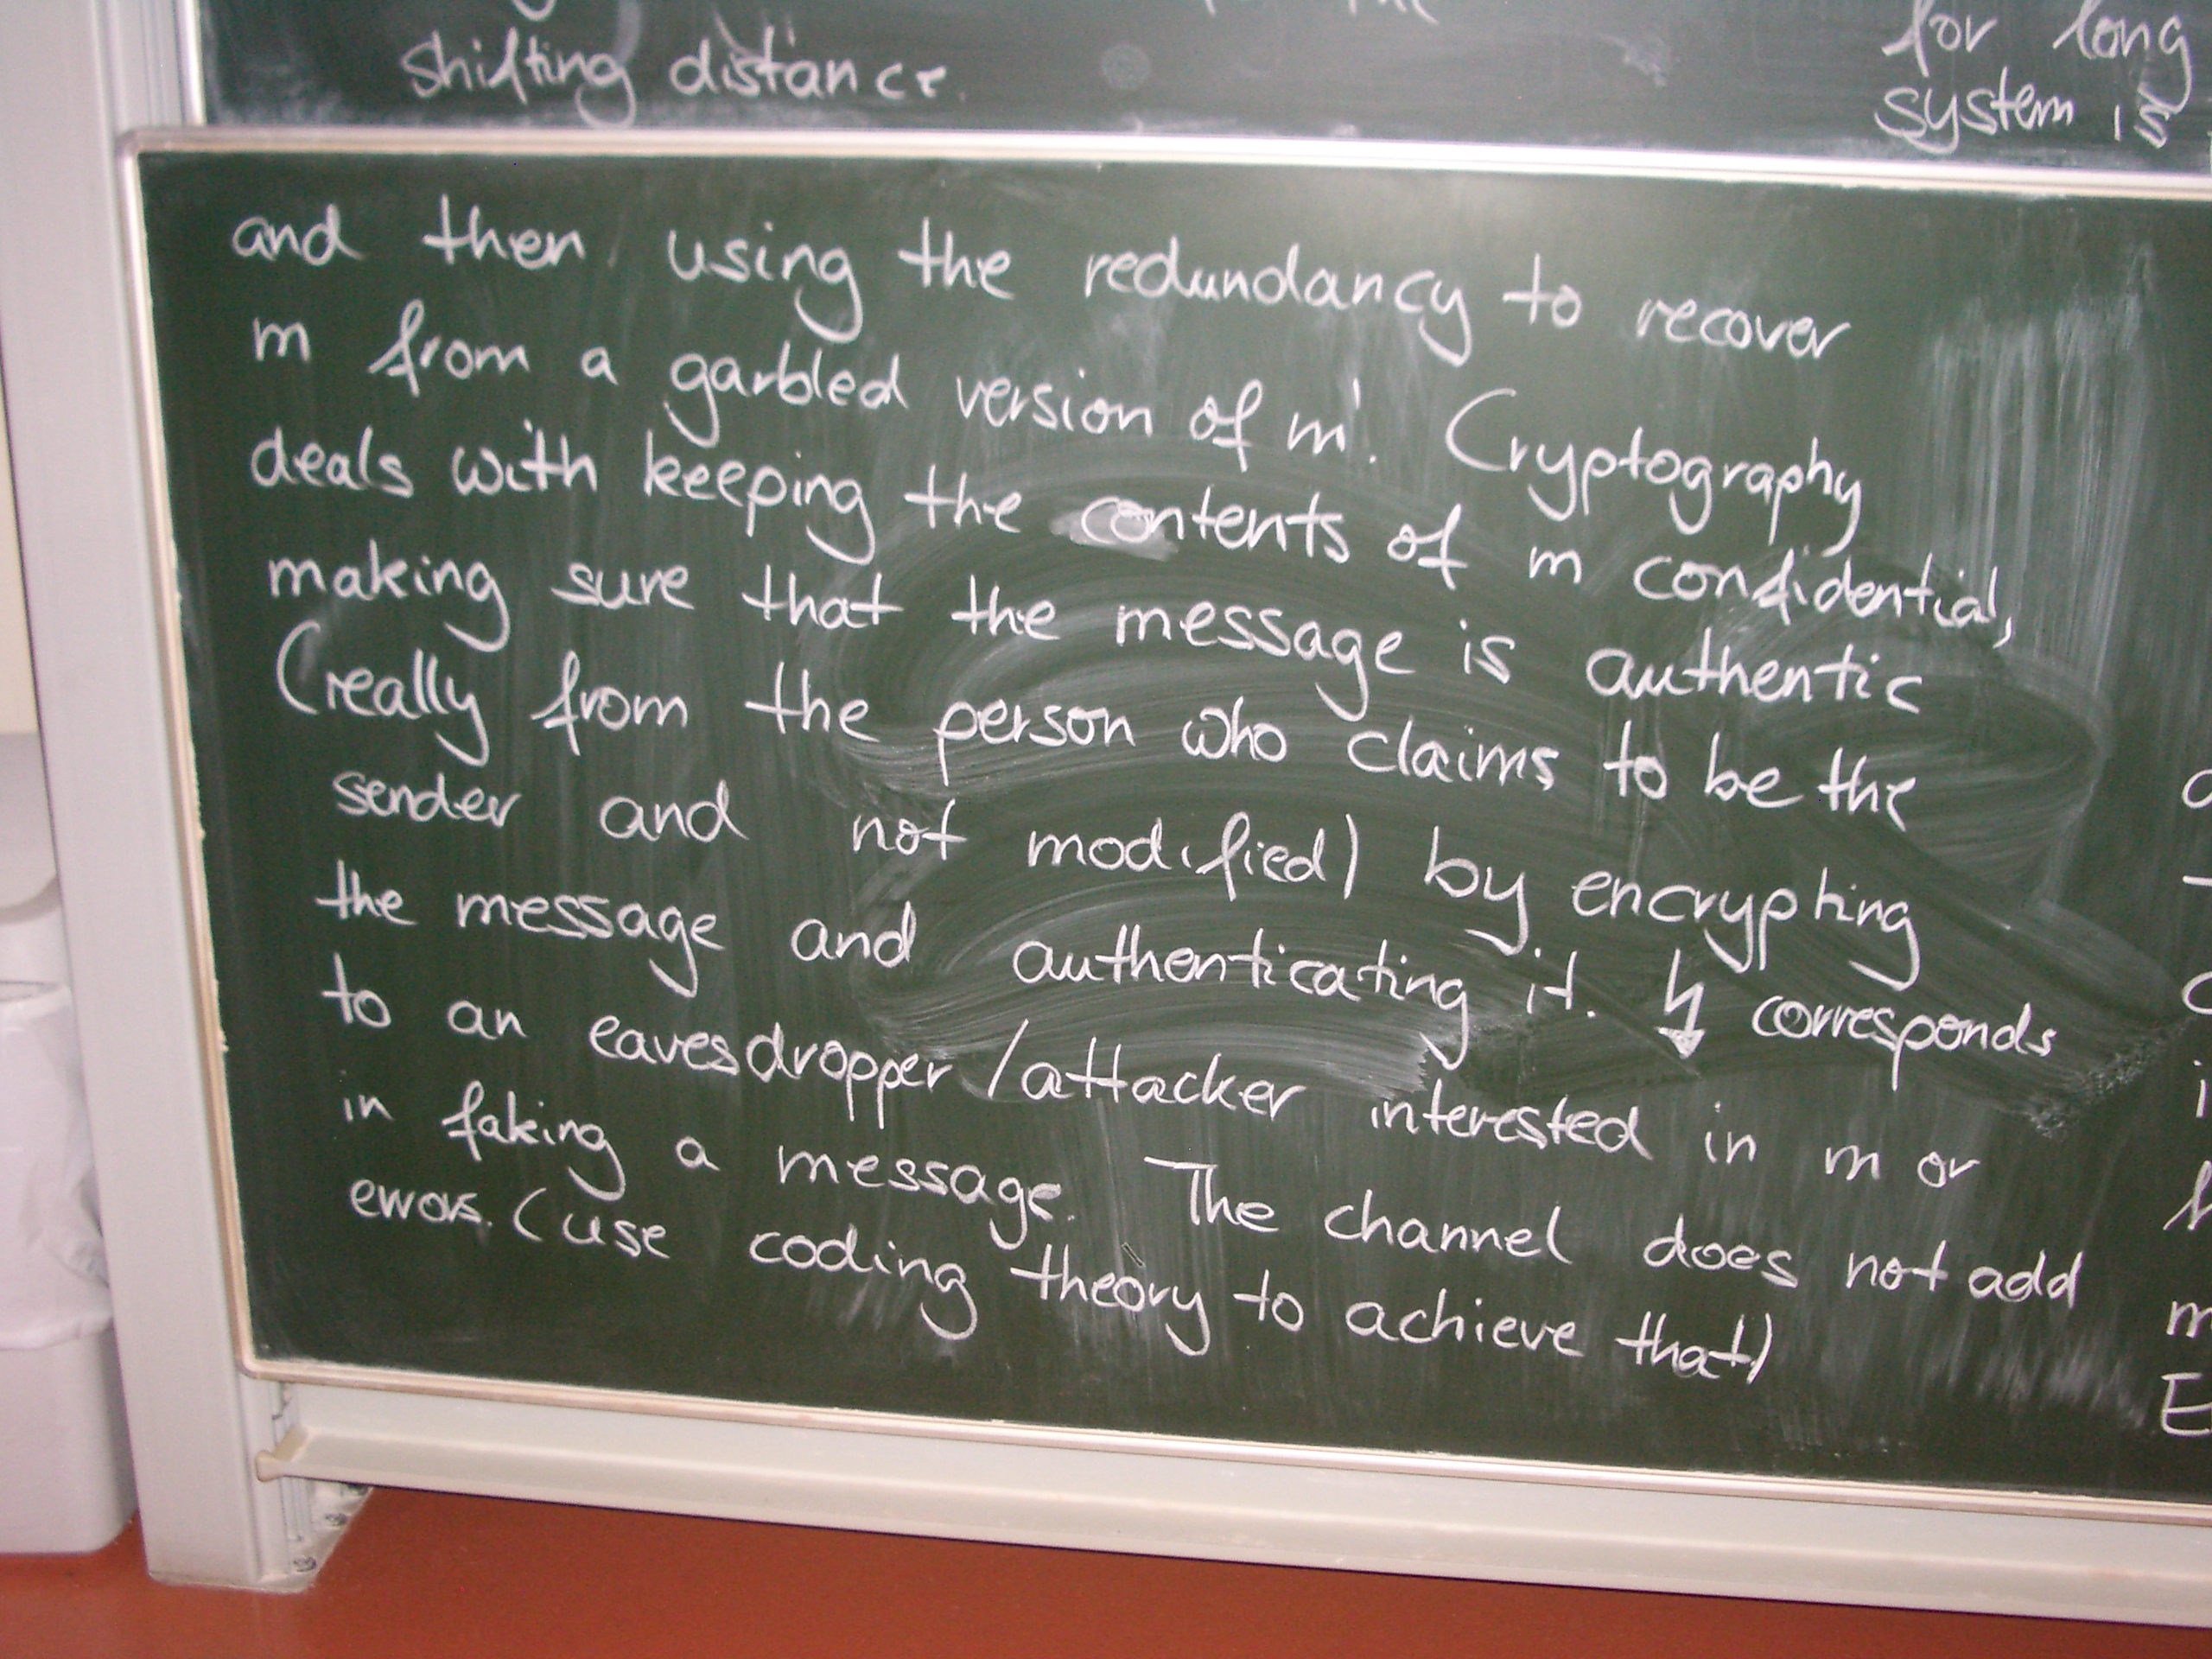 shifting distance.
for long
system is
and then using the redundancy to recover
m from a garbled version of m'. Cryptography
deals with keeping the contents of m confidential,
making sure that the message is authentic
(really from the person who claims to be the
sender and not modified) by encrypting
the message and authenticating it. ↯ corresponds
to an eavesdropper/attacker interested in m or
in faking a message. The channel does not add
errors. (use coding theory to achieve that)
m
E